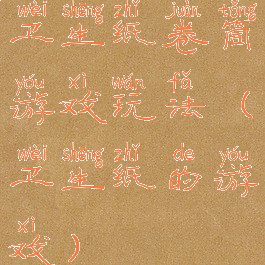 wèi shēng zhǐ juǎn tǒng
卫生纸卷筒
yóu xì wán fǎ
游戏玩法（
wèi shēng zhǐ de yóu
卫生纸的游
xì
戏）